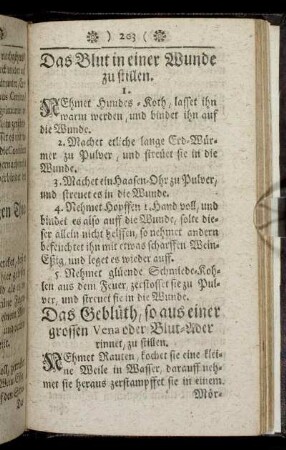 203
Das Blut in einer Wunde
zu stilen.
1.
NEhmet Hundes-Koth, lasset ihn
warm werden, und bindet ihn auf
die Wunde.
2. Machet etliche lange Erd-Wür-
mer zu Pulver, und streuet sie in die
Wunde.
3. Machet ein Haasen-Ohr zu Pulver,
und streuet es in die Wunde.
4. Nehmet Hopffen 1. Hand voll, und
bindet es also auff die Wunde, solte die-
ser allein nicht helffen, so nehmet andern
befeuchtet ihn mit etwas scharffen Wein-
Eßig, und leget es wieder auff.
5. Nehmet glüende Schmiede-Koh-
len aus dem Feuer, zerstosset sie zu Pul-
ver, und streuet sie in die Wunde.
Das Geblüth, so aus einer
grossen Vena oder Blut-Ader
rinnet, zu stillen.
NEhmet Rauten, kochet sie eine klei-
ne Weile in Wasser, darauff neh-
met sie heraus zerstampffet sie in einem
Mör-